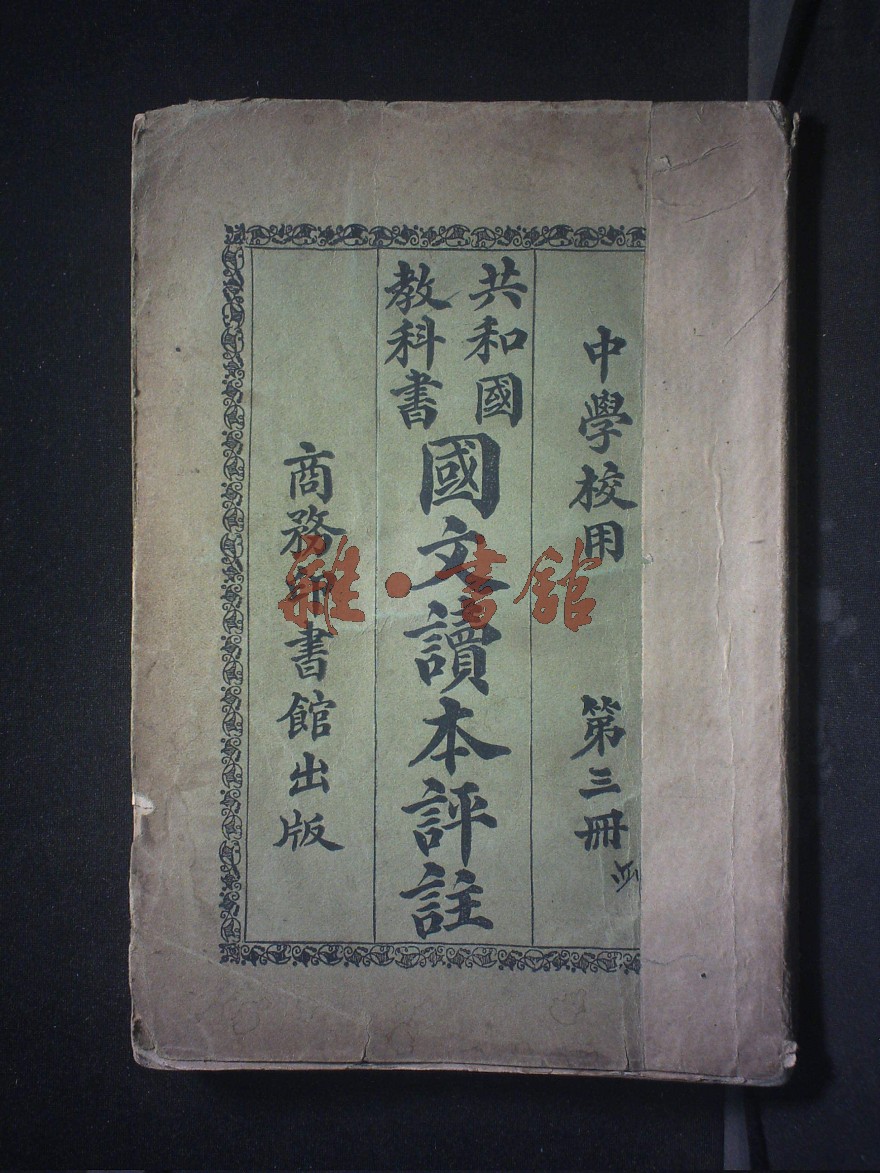 中學校用 第三冊
共和國
教科書
國文讀本評註
商務印書館出版
雜·書館